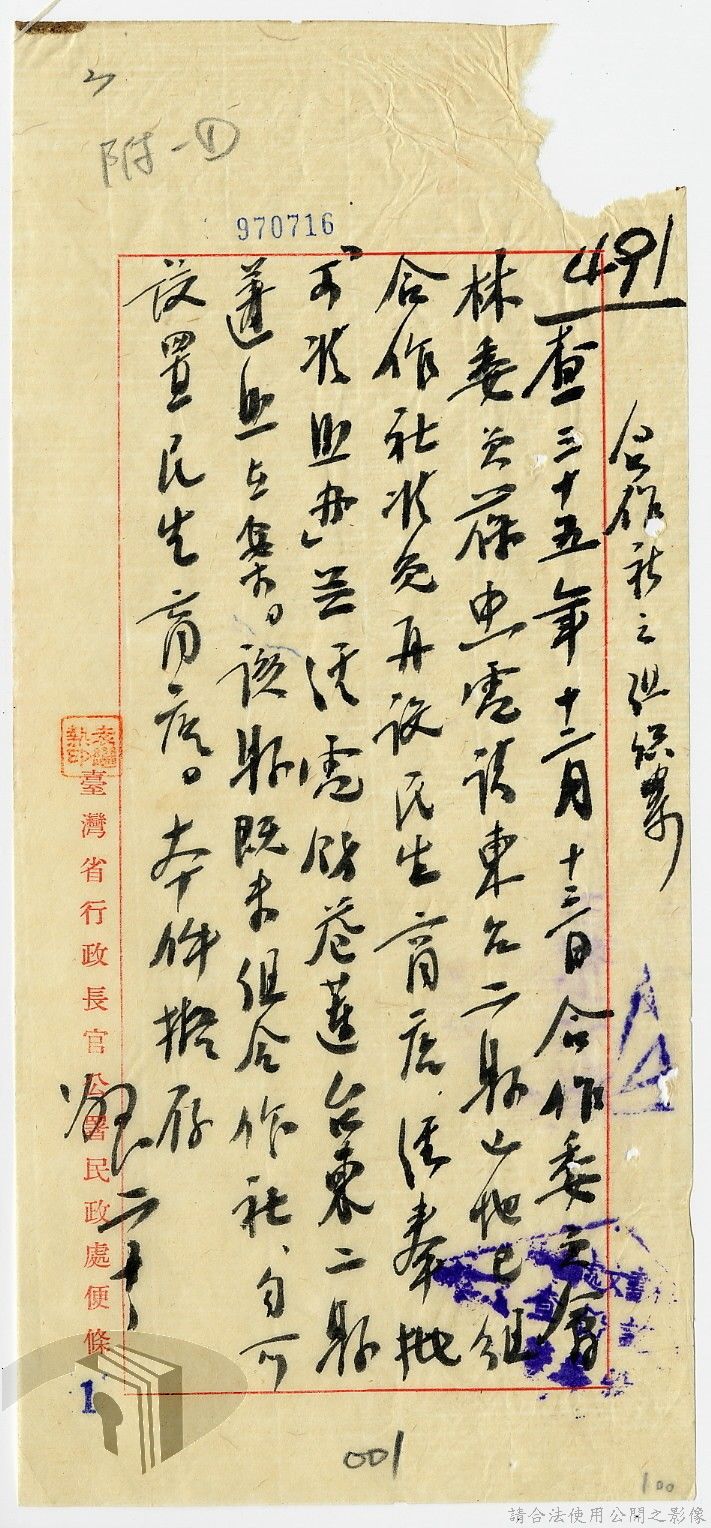 附一①
970716
491
合作社之組織案
查三十五年十二月十三日合作委員會
林委員葆忠電請東台二縣山地已組
合作社准免再設民生商店、經奉批
「可准照辦」并經電飭花蓮台東二縣
遵照在案。該縣既未組合作社、自可
設置民生商店。本件擬存
二十
臺灣省行政長官公署民政處便條
1
001
100
請合法使用公開之影像